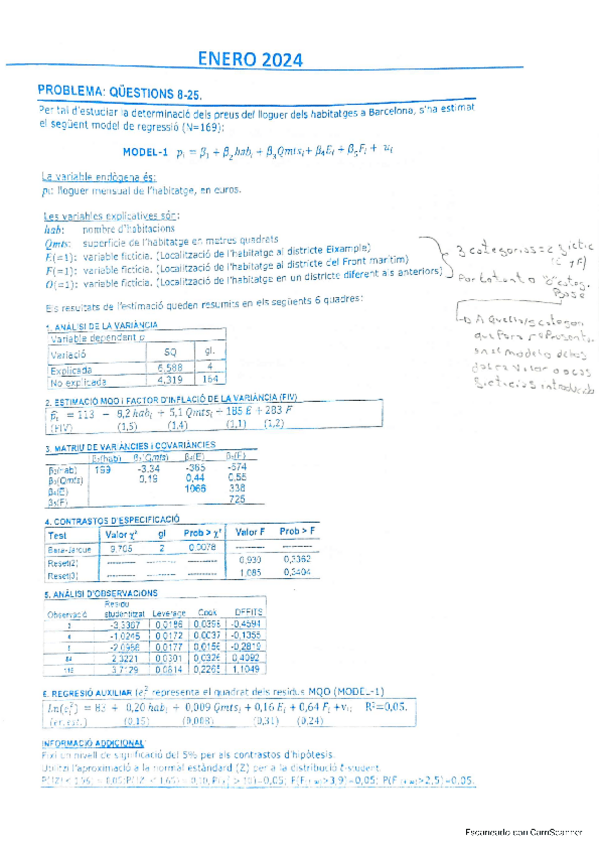 ENERO 2024
PROBLEMA: QÜESTIONS 8-25.
Per tal d'estudiar la determinació dels preus del lloguer dels habitatges a Barcelona, s'ha estimat
el següent model de regressió (N=169):
MODEL-1 pᵢ = β₁ + β₂habᵢ + β₃Qmtsᵢ + β₄Eᵢ + β₅Fᵢ + uᵢ
La variable endògena és:
pᵢ: lloguer mensual de l'habitatge, en euros.
Les variables explicatives són:
hab: nombre d'habitacions
Qmts: superfície de l'habitatge en metres quadrats
E(=1): variable fictícia. (Localització de l'habitatge al districte Eixample)
F(=1): variable fictícia. (Localització de l'habitatge al districte del Front marítim)
O(=1): variable fictícia. (Localització de l'habitatge en un districte diferent als anteriors)
3 categorias = 2 fictic
Por lo tanto "O" categ.
Base
Els resultats de l'estimació queden resumits en els següents 6 quadres:
1. ANÀLISI DE LA VARIÀNCIA
Variable dependent p
Variació SQ gl.
Explicada 6,588 4
No explicada 4,319 164
2. ESTIMACIÓ MQO I FACTOR D'INFLACIÓ DE LA VARIÀNCIA (FIV)
= 113 − 8,2 habᵢ + 5,1 Qmtsᵢ + 185 E + 283 F
(FIV) (1,5) (1,4) (1,1) (1,2)
3. MATRIU DE VARIÀNCIES I COVARIÀNCIES
β₂(hab) β₃(Qmts) β₄(E) β₅(F)
β₂(hab) 169 -3,34 -365 -574
β₃(Qmts) 0,19 0,44 0,55
β₄(E) 1066 338
β₅(F) 725
4. CONTRASTOS D'ESPECIFICACIÓ
Test Valor χ² gl Prob > χ² Valor F Prob > F
Bera-Jarque 9,705 2 0,0078 ---------- ----------
Reset(2) ---------- ---------- ---------- 0,930 0,3362
Reset(3) ---------- ---------- ---------- 1,085 0,3404
5. ANÀLISI D'OBSERVACIONS
Observació Residu studentitzat Leverage Cook DFFITS
-3,3367 0,0186 -0,4594
-1,0245 0,0172 0,0037 -0,1355
0,0177 0,0156
84 2,3221 0,0301 0,0326 0,4092
3,7129 0,0814 0,2265 1,1049
6. REGRESSIÓ AUXILIAR (eᵢ² representa el quadrat dels residus MQO (MODEL-1)
Ln(eᵢ²) = 83 + 0,20 habᵢ + 0,009 Qmtsᵢ + 0,16 Eᵢ + 0,64 Fᵢ + vᵢ; R²=0,05.
(0,15) (0,008) (0,31) (0,24)
INFORMACIÓ ADDICIONAL:
Fixi un nivell de significació del 5% per als contrastos d'hipòtesis.
Utilitzi l'aproximació a la normal estàndard (Z) per a la distribució t-student.
Escaneado con CamScanner